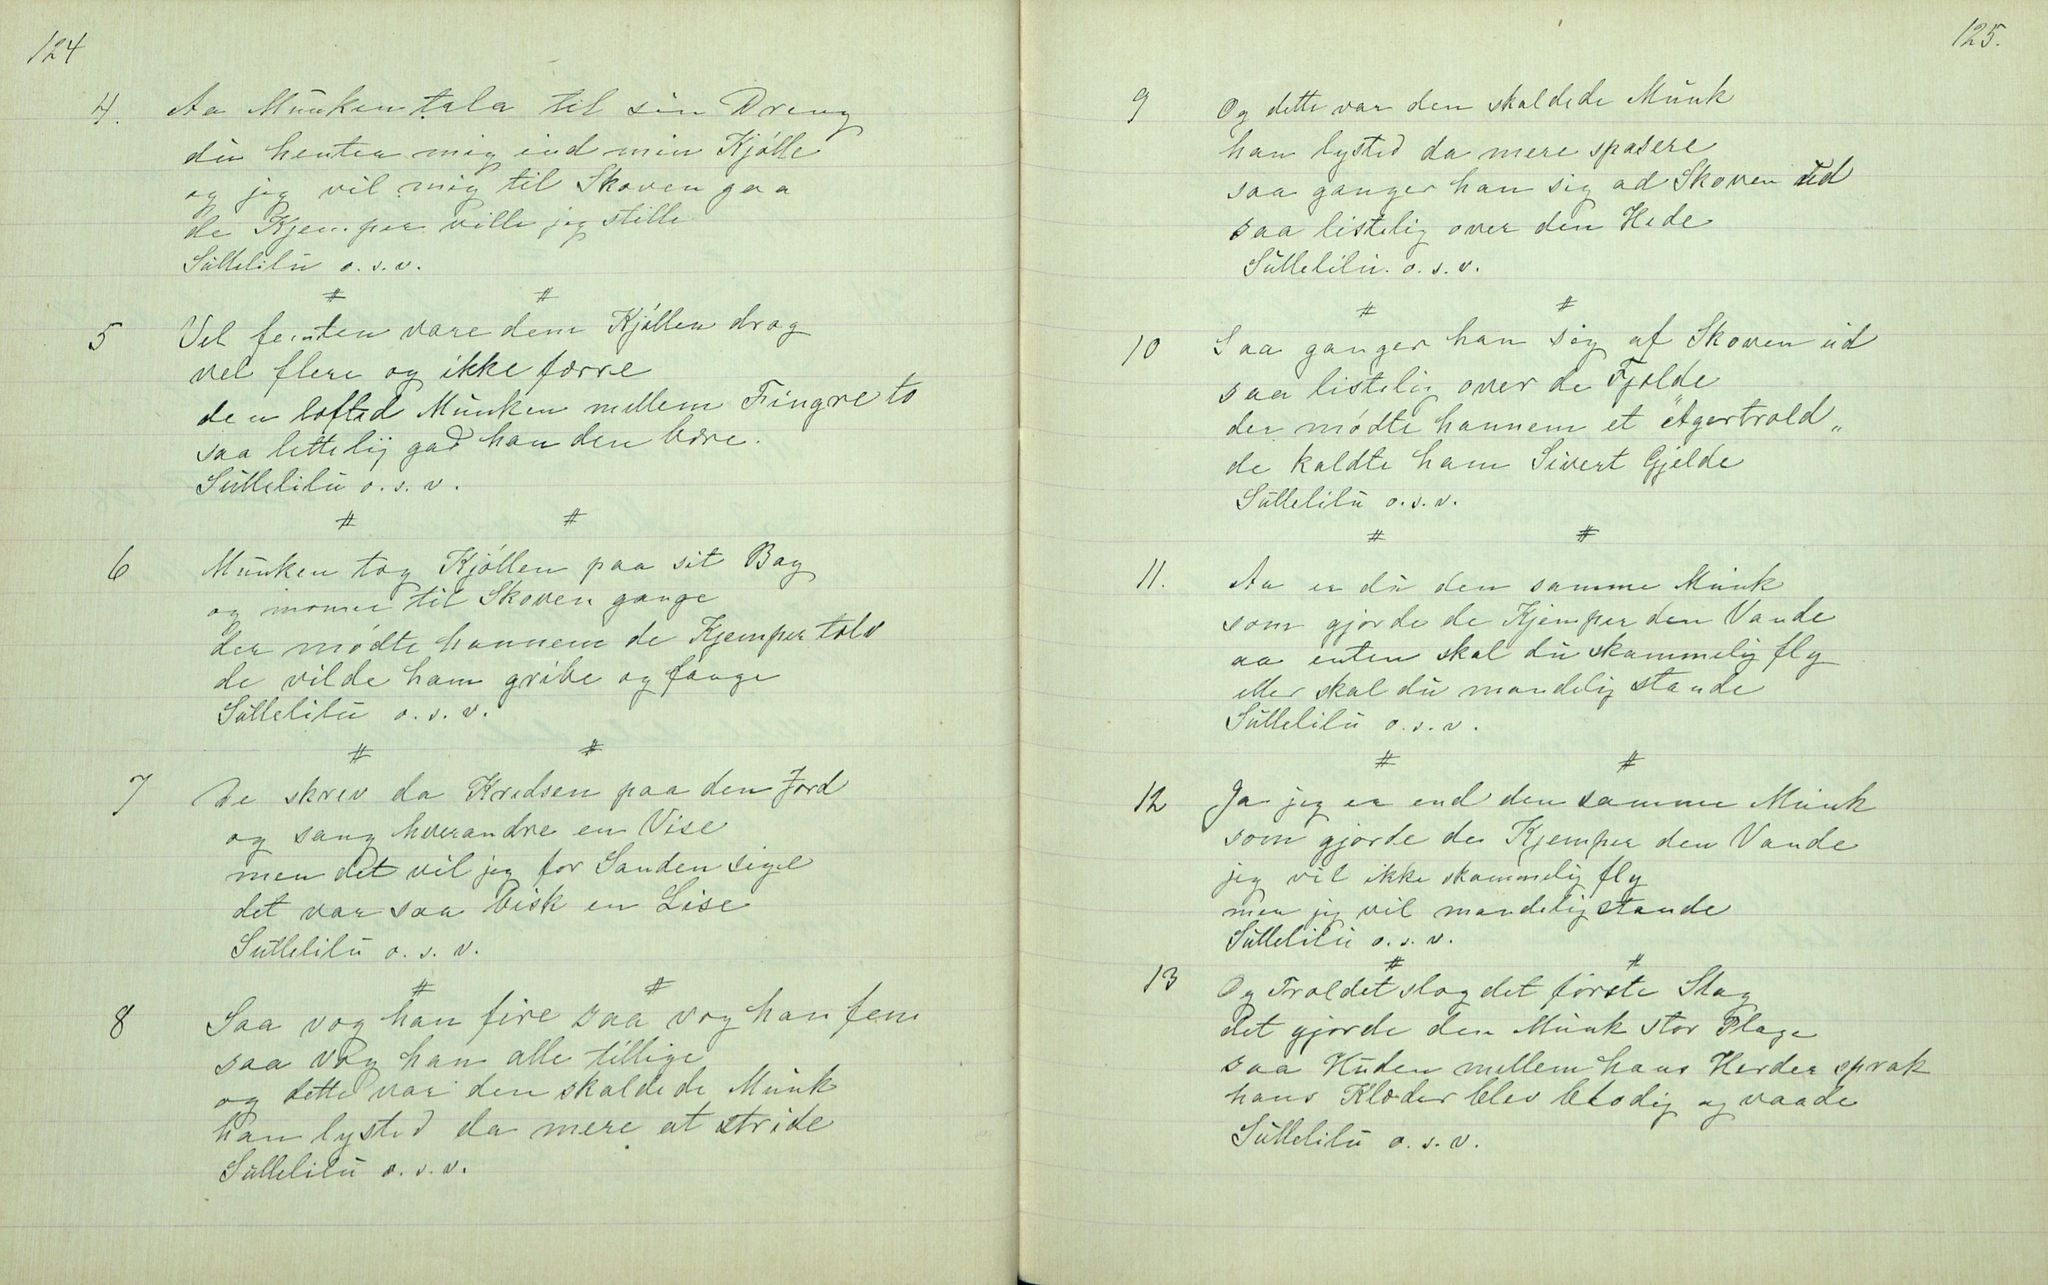 124
4. Aa Munken tala til sin Dreng
du henter mig ind min Kjølle
og jeg vil mig til Skoven gaa
de Kjemper ville jeg stille
Sullelilu o. s. v.
# #
5 Vel femten vare dem Kjøllen drog
vel flere og ikke færre
den lofted Munken mellem Fingre to
saa lettelig gad han den bære.
Sullelilu o. s. v.
# #
6 Munken tog Kjøllen paa sit Bag
og monne til Skoven gange
der mødte hannem de Kjemper tolv
de vilde ham gribe og fange
Sullelilu o. s. v.
# #
7 De skrev da Kredsen paa den Jord
og sang hverandre en Vise
men det vil jeg for Sanden sige
det var saa visk en Lise
Sullelilu o. s. v.
# #
8 Saa vog han fire saa vog han fem
saa vog han alle tillige
og dette var den skaldede Munk
han lysted da mere at stride
Sullelilu o. s. v.
125.
9 Og dette var den skaldede Munk
han lysted da mere spasere
saa ganger han sig ad Skoven ud
saa listelig over den Hede
Sullelilu. o. s. v.
# #
10 Saa ganger han sig af Skoven ud
saa listelig over de Fjelde
der mødte hannem et "Agertrold„
de kaldte ham Sivert Gjelde
Sullelilu o. s. v.
# #
11. Aa er du den samme Munk
som gjorde de Kjemper den Vande
aa enten skal du skammelig fly
eller skal du mandelig stande
Sullelilu o. s. v.
# #
12 Ja jeg er end den samme Munk
som gjorde de Kjemper den Vande
jeg vil ikke skammelig fly
men jeg vil mandelig stande
Sullelilu o. s. v.
# #
13 Og Troldet slog det første Slag
det gjorde den Munk stor Plage
saa Huden mellem hans Herder sprak
hans Klæder blev blodig og vaade
Sullelilu o. s. v.